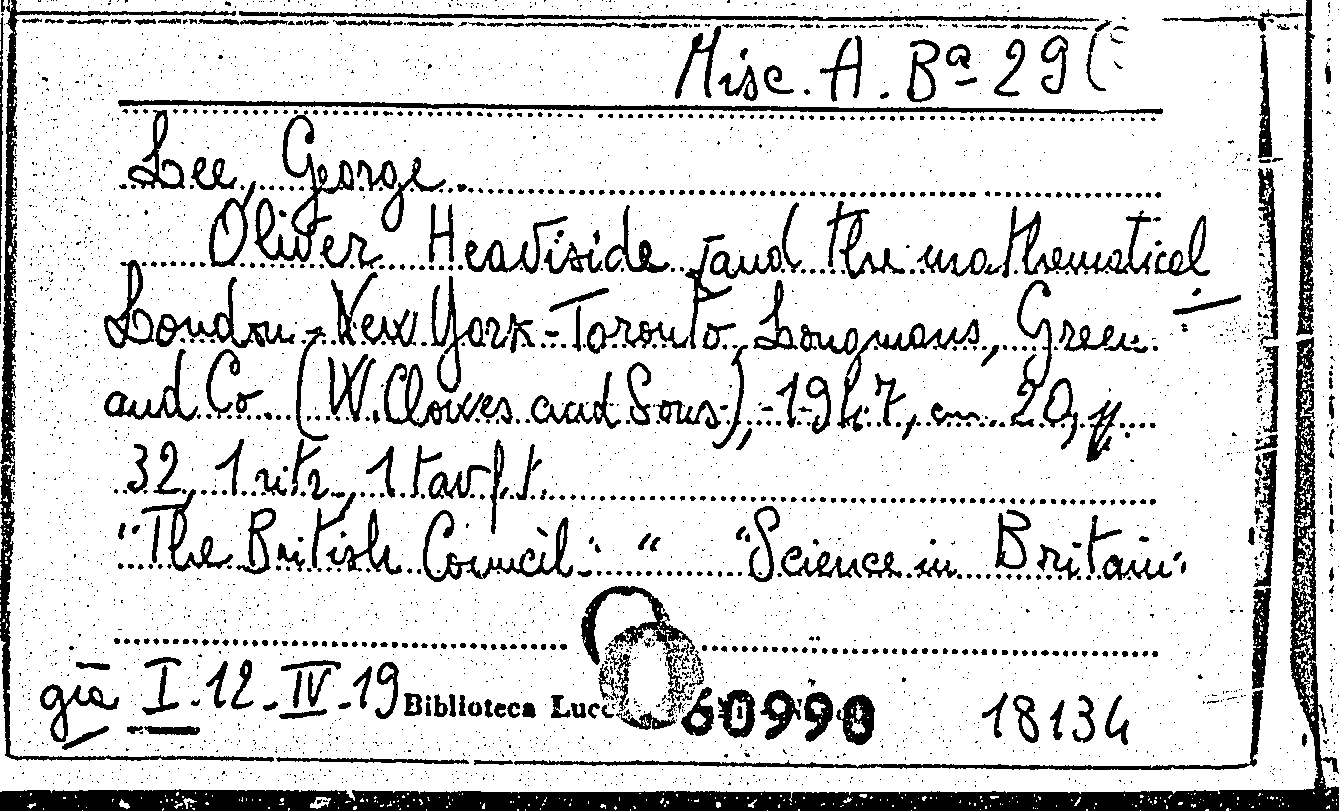 Misc. A. Bª 29 (
Lee, George.
Oliver Heaviside and the mathematical
London - New York - Toronto Longmans, Green
and Co. (W. Clowes and Sons), 1947, cm. 20, pp.
32, 1 ritr, 1 tav f.t.
"The British Council." " "Science in Britain."
già I.12.IV.19 Biblioteca 60990 18134